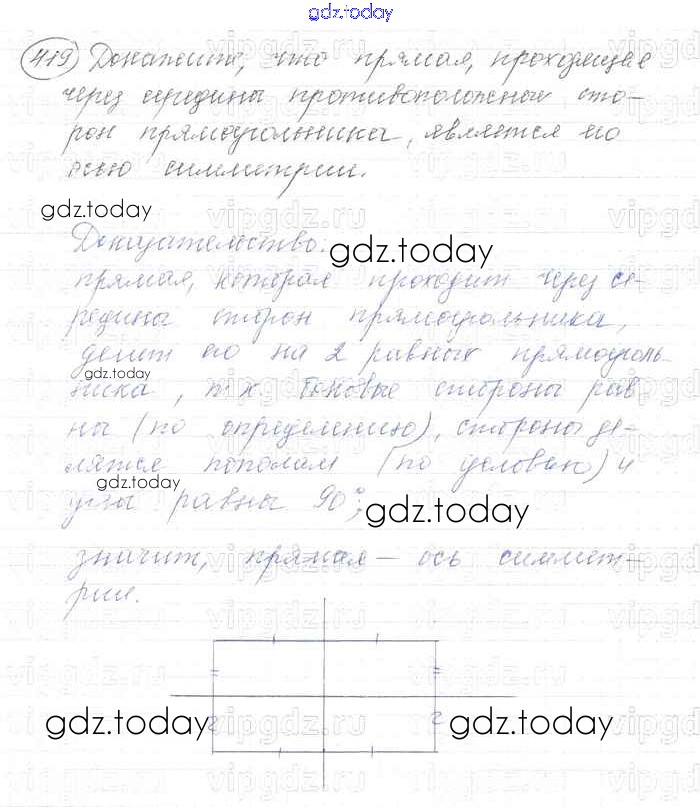 gdz.today
419 Докажите, что прямая, проходящая
через середины противоположных сто-
рон прямоугольника, является его
осью симметрии.
gdz.today
Доказательство:
gdz.today
прямая, которая проходит через се-
редины сторон прямоугольника,
делит его на 2 равных прямоуголь-
gdz.today
ника, т.к. боковые стороны рав
ны (по определению), стороны де-
лятся пополам (по условию) и
gdz.today
углы равны 90°;
gdz.today
значит, прямая – ось симмет-
рии.
gdz.today gdz.today